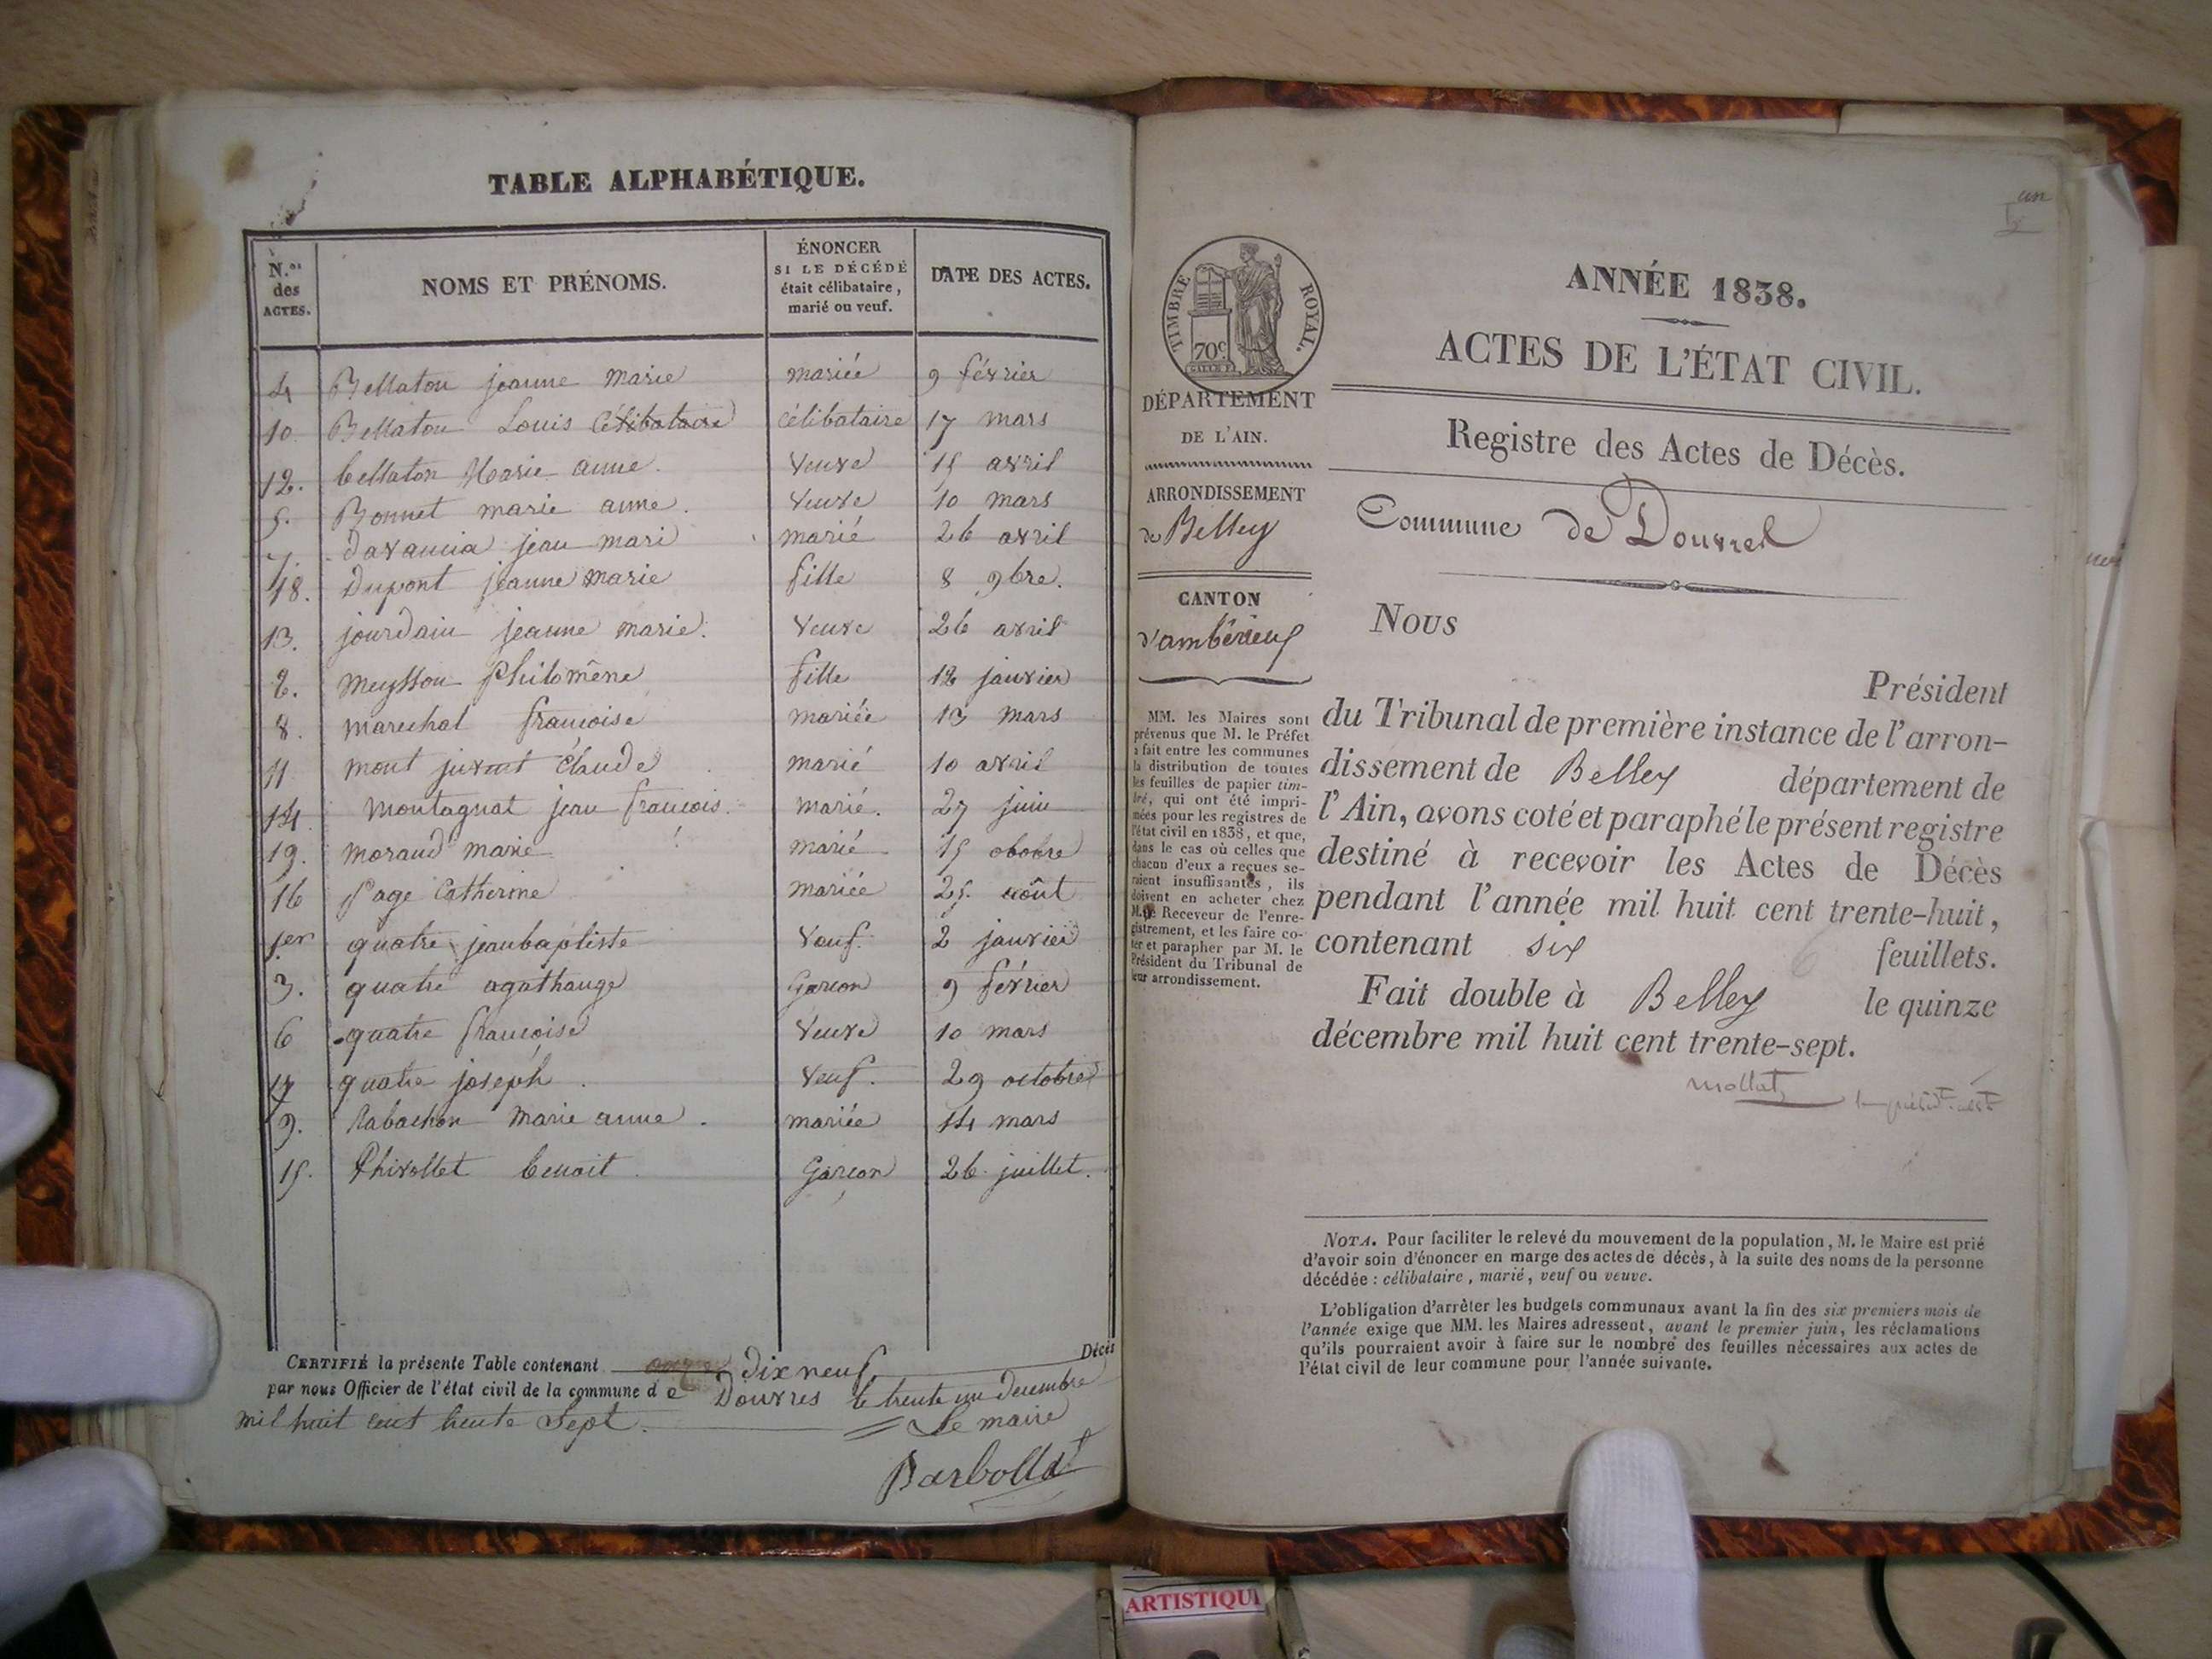 TABLE ALPHABÉTIQUE.
N.os des ACTES.
NOMS ET PRÉNOMS.
ÉNONCER SI LE DÉCÉDÉ était célibataire, marié ou veuf.
DATE DES ACTES.
4 Bellaton jeanne Marie mariée 9 février
10. Bellaton Louis Célibataire célibataire 17 mars
12. bellaton Marie anne. Veuve 15 avril
5. Bonnet marie anne. Veuve 10 mars
7. davancia jean mari marié 26 avril
18. Dupont jeanne marie fille 8 9bre.
13. jourdain jeanne marie. Veuve 26 avril
2. Meysson Philomène fille 12 janvier
8. marechal francoise mariée 13 mars
11 mont juvent Claude marié 10 avril
14. Montagnat jean francois. marié. 27 juin
19. morand marie marié 15 obobre
16 page Catherine mariée 25. août
1er quatre jeanbaptiste Veuf. 2 janvier
3. quatre agathange Garcon 9 février
6 quatre francoise Veuve 10 mars
17 quatre joseph. Veuf. 29 octobre
9. Rabachon Marie anne. mariée 14 mars
15. Thivollet benoit. Garcon 26 juillet.
CERTIFIÉ la présente Table contenant dix neuf Décès
par nous Officier de l'état civil de la commune de Douvres le trente un decembre
mil huit cent trente Sept. Le maire
Barbollat
un
TIMBRE ROYAL.
70c
DÉPARTEMENT
DE L'AIN.
ARRONDISSEMENT
de Belley
CANTON
d'ambérieux
MM. les Maires sont
prévenus que M. le Préfet
a fait entre les communes
la distribution de toutes
les feuilles de papier tim-
bré, qui ont été impri-
mées pour les registres de
l'état civil en 1838, et que,
dans le cas où celles que
chacun d'eux a reçues se-
raient insuffisantes, ils
doivent en acheter chez
M. le Receveur de l'enre-
gistrement, et les faire co-
ter et parapher par M. le
Président du Tribunal de
leur arrondissement.
ANNÉE 1838.
ACTES DE L'ÉTAT CIVIL.
Registre des Actes de Décès.
Commune de Douvres
Nous
Président
du Tribunal de première instance de l'arron-
dissement de Belley département de
l'Ain, avons coté et paraphé le présent registre
destiné à recevoir les Actes de Décès
pendant l'année mil huit cent trente-huit,
contenant six feuillets.
Fait double à Belley le quinze
décembre mil huit cent trente-sept.
mollat
NOTA. Pour faciliter le relevé du mouvement de la population, M. le Maire est prié
d'avoir soin d'énoncer en marge des actes de décès, à la suite des noms de la personne
décédée : célibataire, marié, veuf ou veuve.
L'obligation d'arrêter les budgets communaux avant la fin des six premiers mois de
l'année exige que MM. les Maires adressent, avant le premier juin, les réclamations
qu'ils pourraient avoir à faire sur le nombre des feuilles nécessaires aux actes de
l'état civil de leur commune pour l'année suivante.
ARTISTIQU